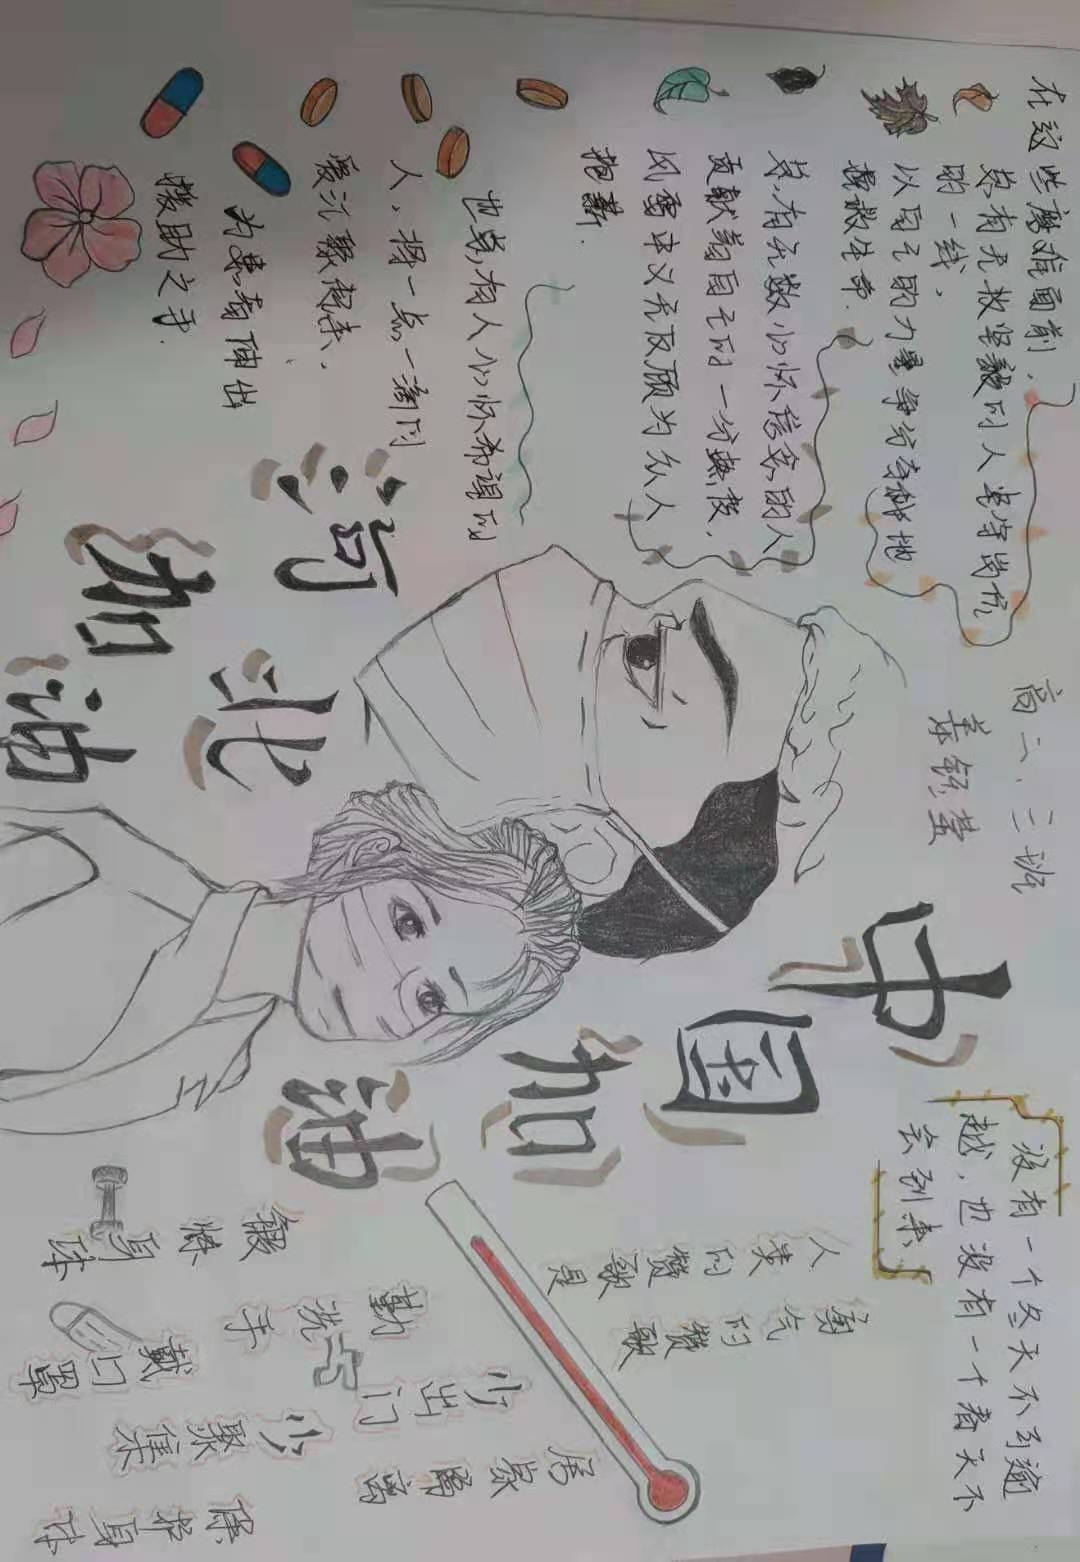 在这些磨难面前，
总有无数坚毅的人坚守岗位
的一线，
以自己的力量争分夺秒地
拯救生命.
总有无数心怀信念的人
贡献着自己的一分热度，
风雪中义无反顾为众人
抱薪.
也总有人心怀希望的
人，将一点一滴的
爱汇聚起来，
为患者伸出
援助之手.
高二、三班
中国加油
河北加油
没有一个冬天不可逾
越，也没有一个春天不
会到来
人类的赞歌是
勇气的赞歌
锻炼身体
勤洗手
戴口罩
少出门
少聚集
保护身体